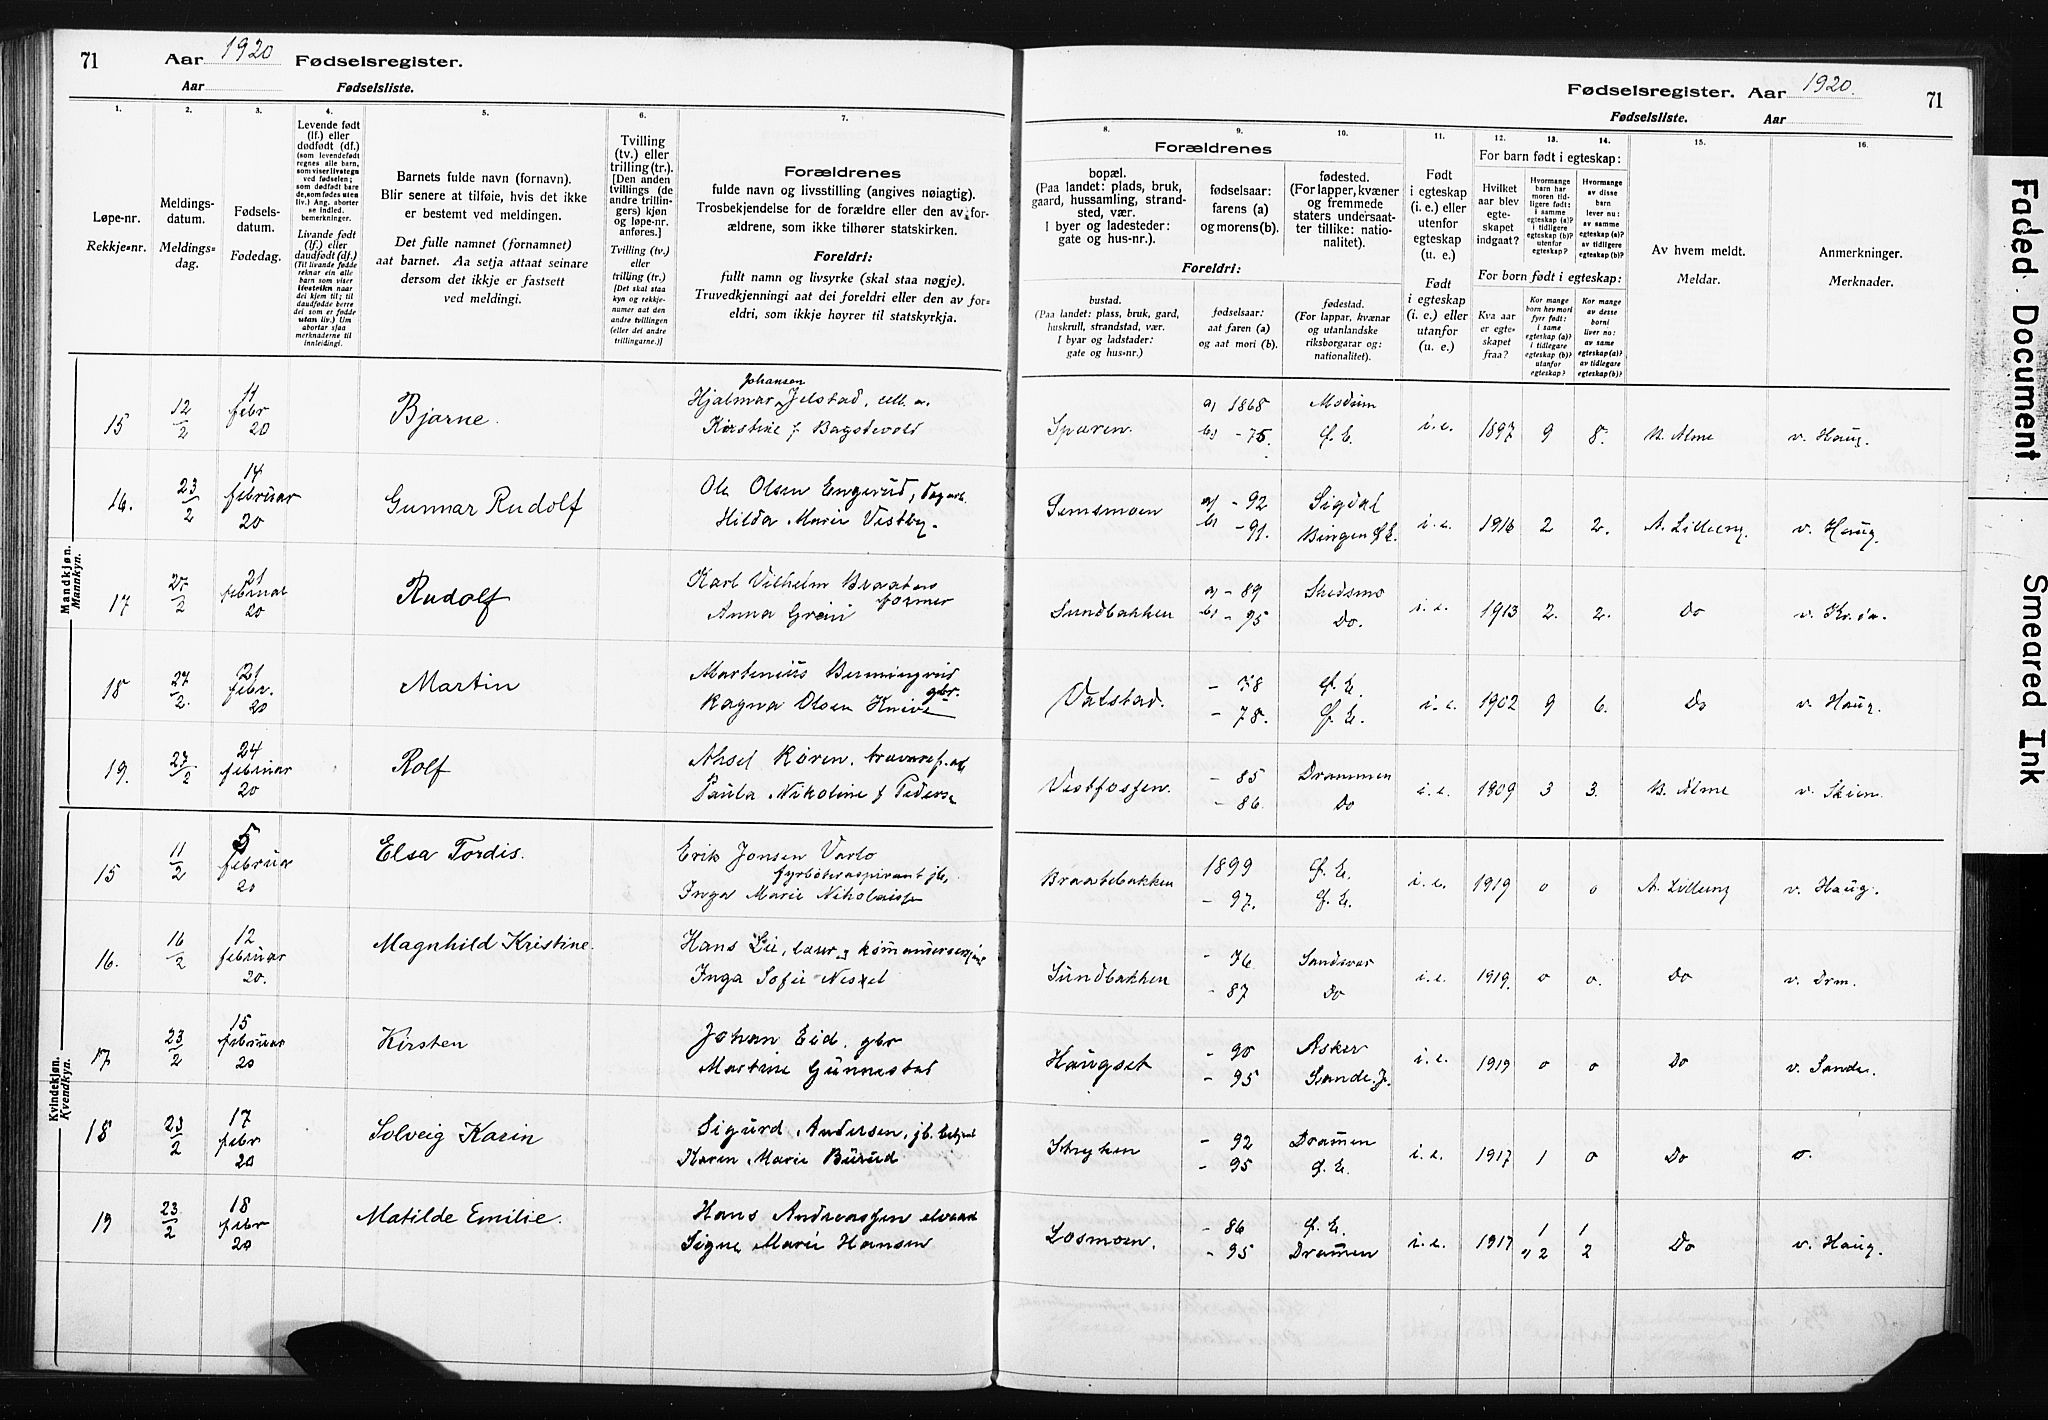 71 Aar 1920 Fødselsregister.
Aar Fødselsliste.
Fødselsregister. Aar 1920. 71
Fødselsliste. Aar
1. 2. 3. 4. 5. 6. 7. 8. 9. 10. 11. 12. 13. 14. 15. 16.
Løpe-nr.
Rekkje-nr.
Meldings-
datum.
Meldings-
dag.
Fødsels-
datum.
Fødedag.
Levende født
(lf.) eller
dødfødt (df.)
(som levendefødt
regnes alle barn,
som viser livstegn
ved fødselen;
som dødfødt bare
de, som fødes uten
liv.) Ang. aborter
se indled.
bemerkninger.
Livande født
(lf.) eller
daudfødt (df.)
(Til livande fødde
reknar ein alle
born som viser
livsteikn naar
dei kjem til; til
daudfødde berre
dei som er fødde
utan liv.) Um
abortar sjaa
merknaderne til
innleiding).
Barnets fulde navn (fornavn).
Blir senere at tilføie, hvis det ikke
er bestemt ved meldingen.
Det fulle namnet (fornamnet)
aat barnet. Aa setja attaat seinare
dersom det ikkje er fastsett
ved meldingi.
Tvilling
(tv.) eller
trilling (tr.).
[Den anden
tvillings (de
andre trillin-
gers) kjøn
og løpe-nr.
anføres.]
Tvilling (tv.)
eller
trilling (tr.)
[Det skal staa
kyn og rekkje-
numer aat den
andre tvillingen
(eller dei andre
trillingarne.)]
Forældrenes
fulde navn og livsstilling (angives nøiagtig).
Trosbekjendelse for de forældre eller den av for-
ældrene, som ikke tilhører statskirken.
Foreldri:
fullt namn og livsyrke (skal staa nøgje).
Truvedkjenningi aat dei foreldri eller den av for-
eldri, som ikkje høyrer til statskyrkja.
Forældrenes
bopæl.
(Paa landet: plads, bruk,
gaard, hussamling, strand-
sted, vær.
I byer og ladesteder:
gate og hus-nr.).
fødselsaar:
farens (a)
og morens (b).
fødested.
(For lapper, kvæner
og fremmede
staters undersaat-
ter tillike: natio-
nalitet).
Foreldri:
bustad.
(Paa landet: plass, bruk, gard,
huskrull, strandstad, vær.
I byar og ladstader:
gate og hus-nr.)
fødselsaar:
aat faren (a)
og aat mori (b).
fødestad.
(For lappar, kvænar
og utanlandske
riksborgarar og:
nationalitet).
Født
i egteskap
(i. e.) eller
utenfor
egteskap
(u. e.)
Født
i egteskap
(i. e.) eller
utanfor
egteskap
(u. e.)
For barn født i egteskap:
Hvilket
aar blev
egte-
skapet
indgaat?
Hvormange
barn har
moren tid-
ligere født:
i samme
egteskap (a)?
i tidligere
egteskap (b)?
utenfor
egteskap?
Hvormange
av disse
barn
lever nu:
av samme
egteskap (a)?
av tidligere
egteskap (b)?
For born født i egteskap:
Kva aar
er egte-
skapet
fraa?
Kor mange
born hev mori
fyrr født:
i same
egteskap (a)?
i tidlegare
egteskap (b)?
utanfor
egteskap?
Kor mange
av desse
borni
liver no:
av same
egteskap (a)?
av tidlegare
egteskap (b)?
Av hvem meldt.
Meldar.
Anmerkninger.
Merknader.
Mandkjøn.
Mannkyn.
15 12/2 11 febr 20 Bjarne. Hjalmar Johansen Jelstad, cell. a. Kirstine f. Bagstevold Sparen. a) 1868 b) - 75. Modum Ø. E. i. e. 1897 9 8. B. Alme v. Haug.
16. 23/2 14 februar 20 Gunnar Rudolf Ole Olsen Engerud, dagarb. Hilda Marie Vestby. Semsmoen a) - 92 b) - 91. Sigdal Bingen Ø. E. i. e. 1916 2 2. A. Lilleeng v. Haug.
17 27/2 21 februar 20 Rudolf Karl Vilhelm Braaten former Anna Greni Sundbakken a) - 89 b) - 95 Skedsmo Do. i. e. 1913 2. 2. Do v. Kr.ia.
18 27/2. 21 febr. 20 Martin Martenius Bermingrud gbr. Ragna Olsen Knive Valstad. - 78 - 78. Ø. E. Ø. E. i. e. 1902 9 6. Do v. Haug.
19. 27/2 24 februar 20 Rolf Aksel Køren. Paula Nikoline f Peders Vestfossen. - 85 - 86. Drammen Do i. e. 1909 3 3. B. Alme v. Skien.
Kvindekjøn.
Kvendkyn.
15 11/2 5 februar 20 Elsa Tordis. Erik Jonsen Varlo fyrbøteraspirant jb. Inga Marie Nikolaisen Braatebakken 1899 - 97. Ø. E. Ø. E. i. e. 1919 0 0 A. Lilleeng v. Haug.
16. 16/2 12 februar 20. Magnhild Kristine. Hans Lie, Inga Sofie Neset Sundbakken - 76 - 87 Sandsvær Do i. e. 1919. 0 0. Do v. Drm.
17. 23/2 15 februar 20 Kirsten Johan Eid. gbr Martine Gunnestad Haugset - 90 - 95 Asker Sande. J. i. e. 1919 0 0 Do v. Sande.
18 23/2 17 febr 20 Solveig Karin Sigurd Andersen, jb. betjent Karen Marie Burud Stryken - 92 - 95 Dramen Ø. E. i. e. 1917 1 0 Do v.
19 23/2 18 febr 20 Matilde Emilie. Hans Andreassen Signe Marie Hansen Losmoen. - 86 - 95 Ø. E. Dramen i. e. 1917 1 2 1 2 Do v. Haug.
Faded Document
Smeared Ink